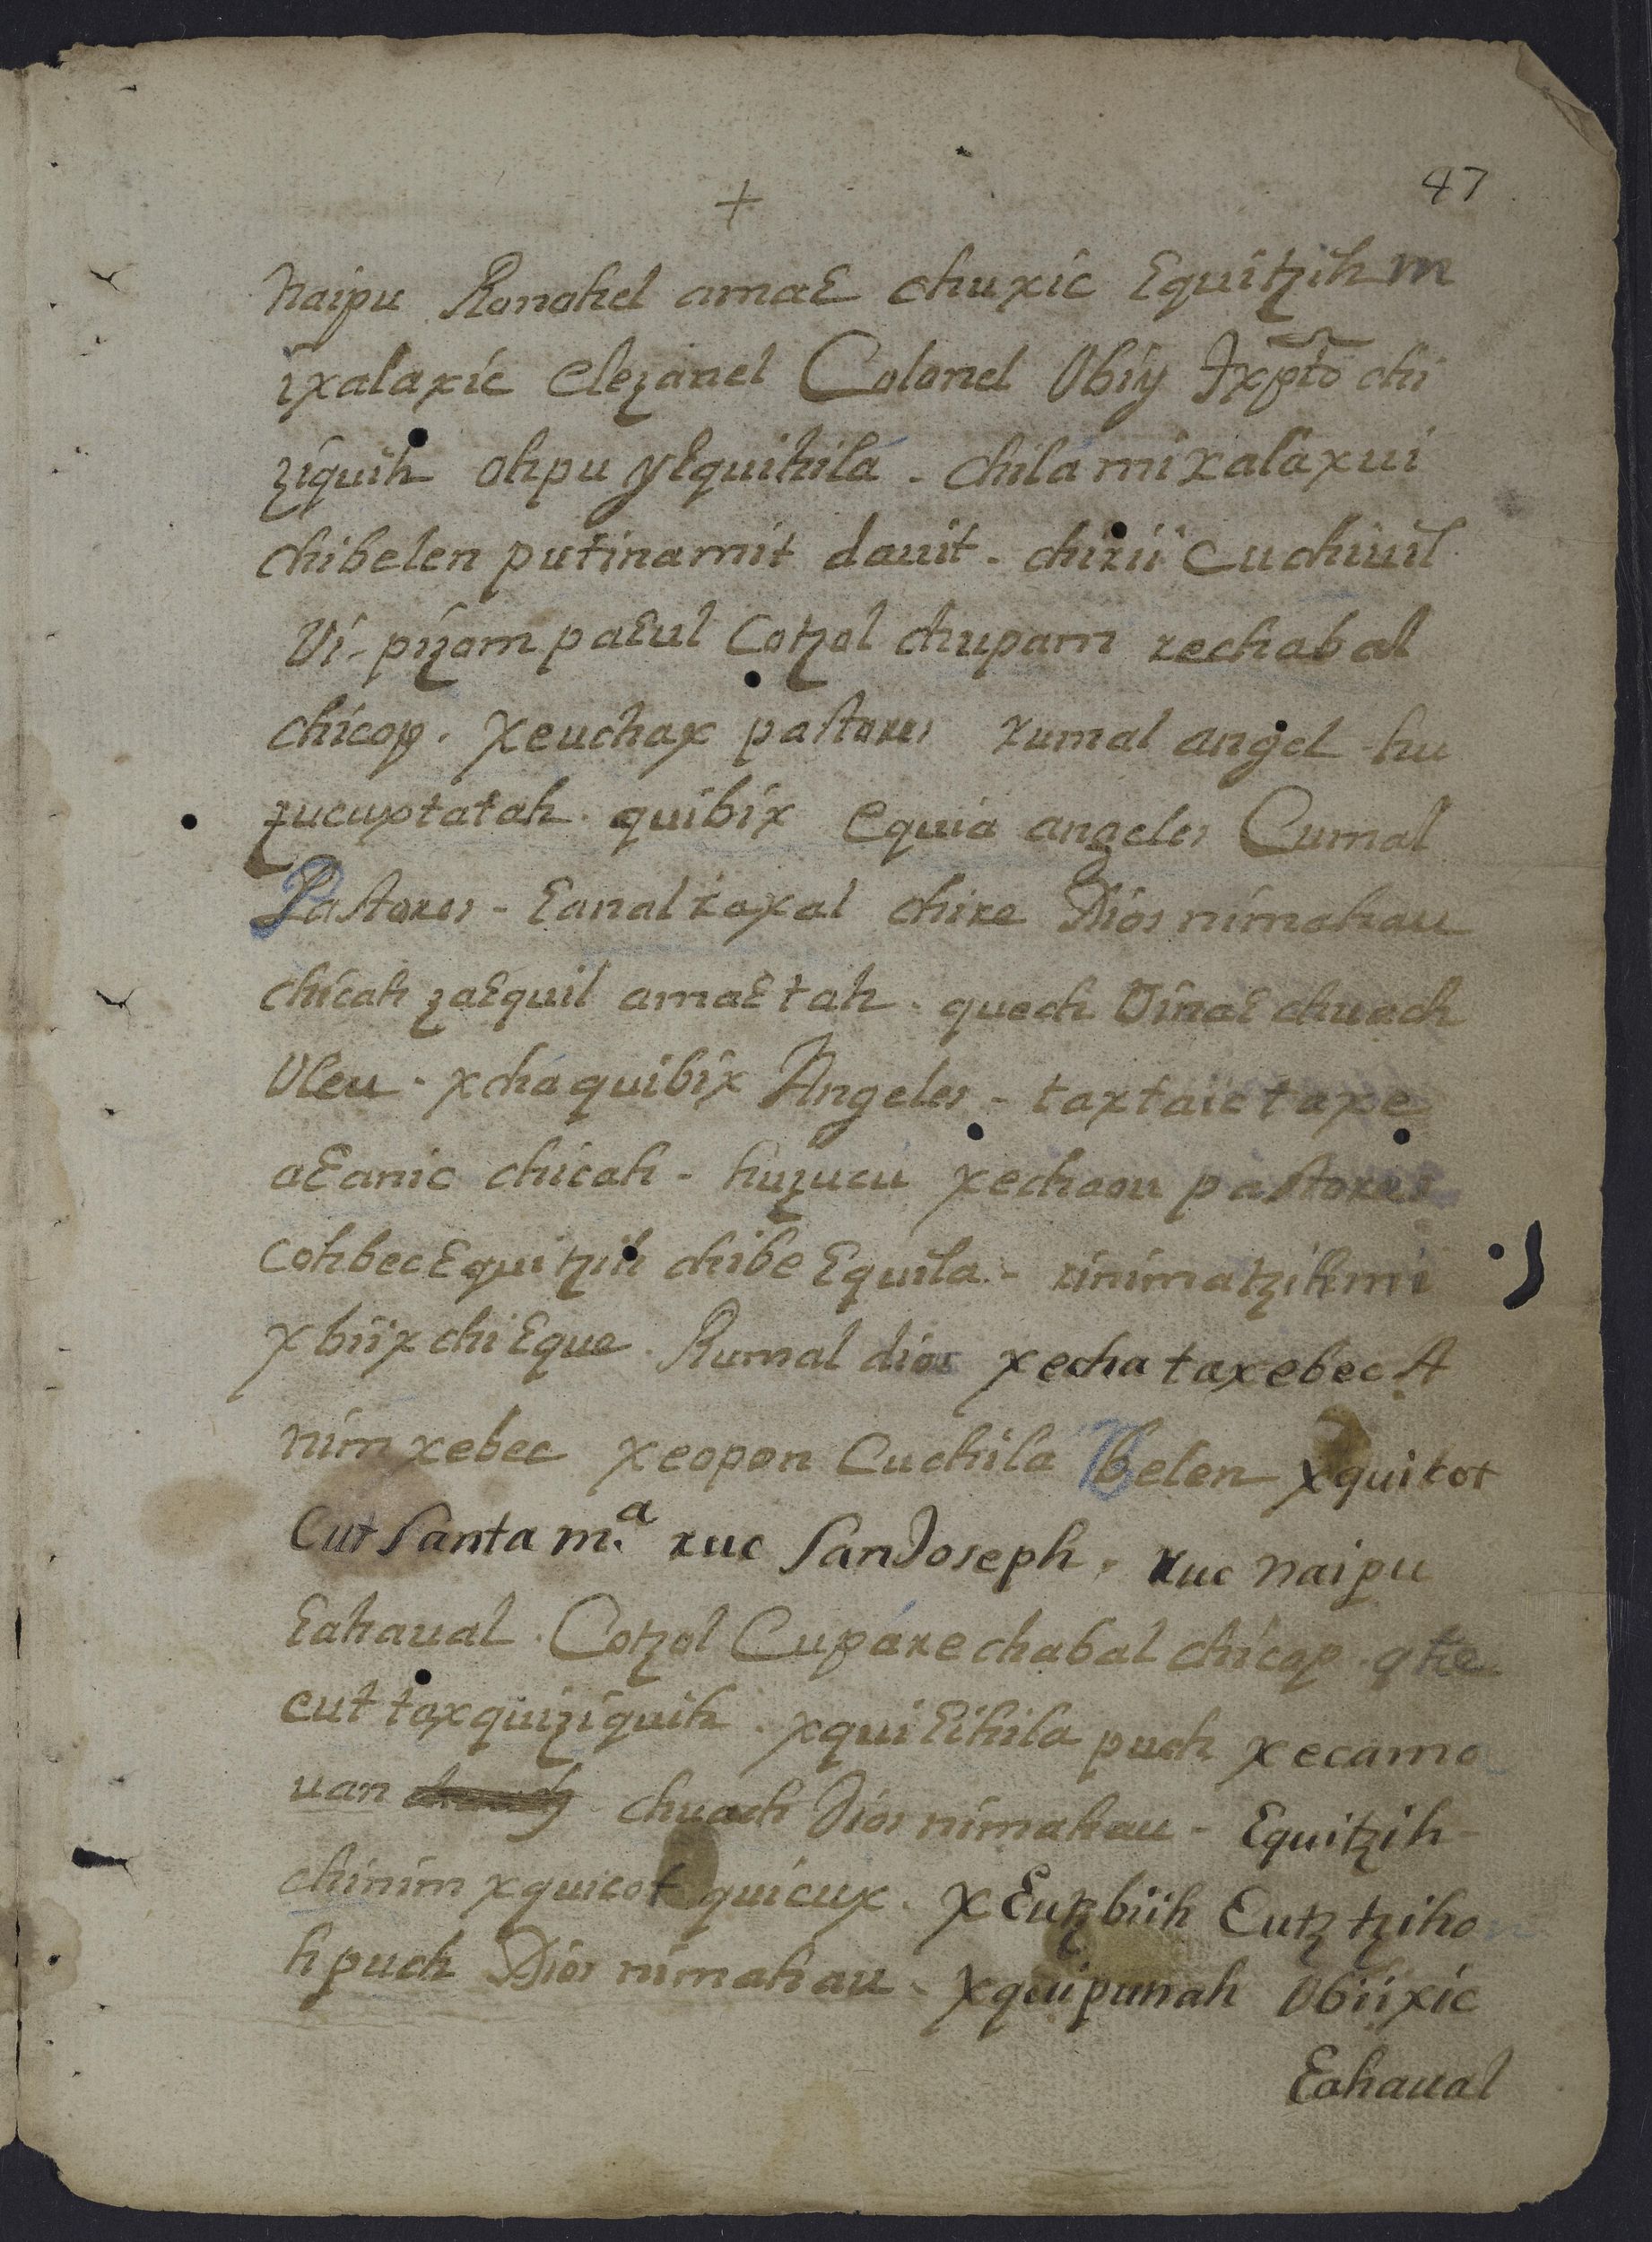 47
+
naipu Ronohel amaɛ chuxic ɛquitzih m
ixalaxic elezanel Colonel Vbiy Jxpto chi
ziquih ohpu yɛquihilá - chilá mi xalaxui
chibelen putinamit dauit - chirii cuchiuil
Vi - pizom paɛul Cotzol chupam rechabal
chicop. Xeuchax pastores rumal angel hu
zucuxtatah. quibix equia angeles Cumal
Pastores - ɛanal raxal chire Dios nimahau
chicah zaɛquil amaɛ tah. quech Vinaɛ chuach
Vleu - xchá quibix Angeles - taxtaic taxe
aɛanic chicah - huzucu xechaou pastores
cohbec ɛquitzih chibe ɛquila - rinimatzih mi
xbiix chiɛque. Rumal dios xecha taxebec A
nim xebec xeopon Cuchila belen xquicot
Cut santa m.ª ruc San Joseph. ruc naipu
ɛahaual. Cotzol Cupárechabal chicop. qhe
cut taxquiziquih. xquiɛihila puch xecamo
uan chuach Dios nimahau - ɛquitzih -
chinim xquicot quicux. xɛutzbiih ɛutz tziho
h puch Dios nimahau. xquipunah Vbiixic
ɛahaual